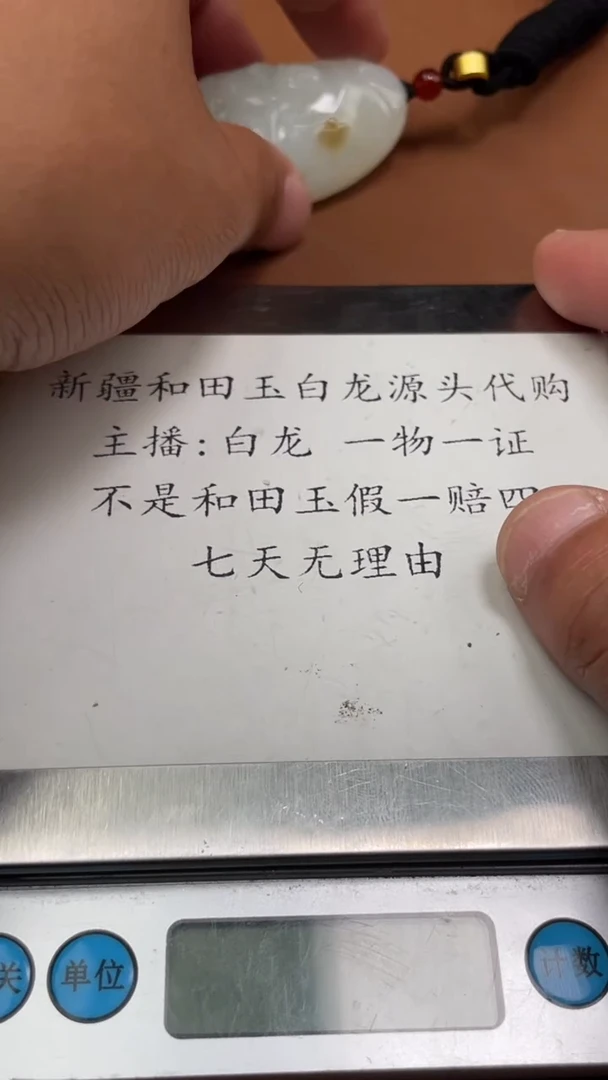 新疆和田玉白龙源头代购
主播:白龙 一物一证
不是和田玉假一赔四
七天无理由
关 单位 计数